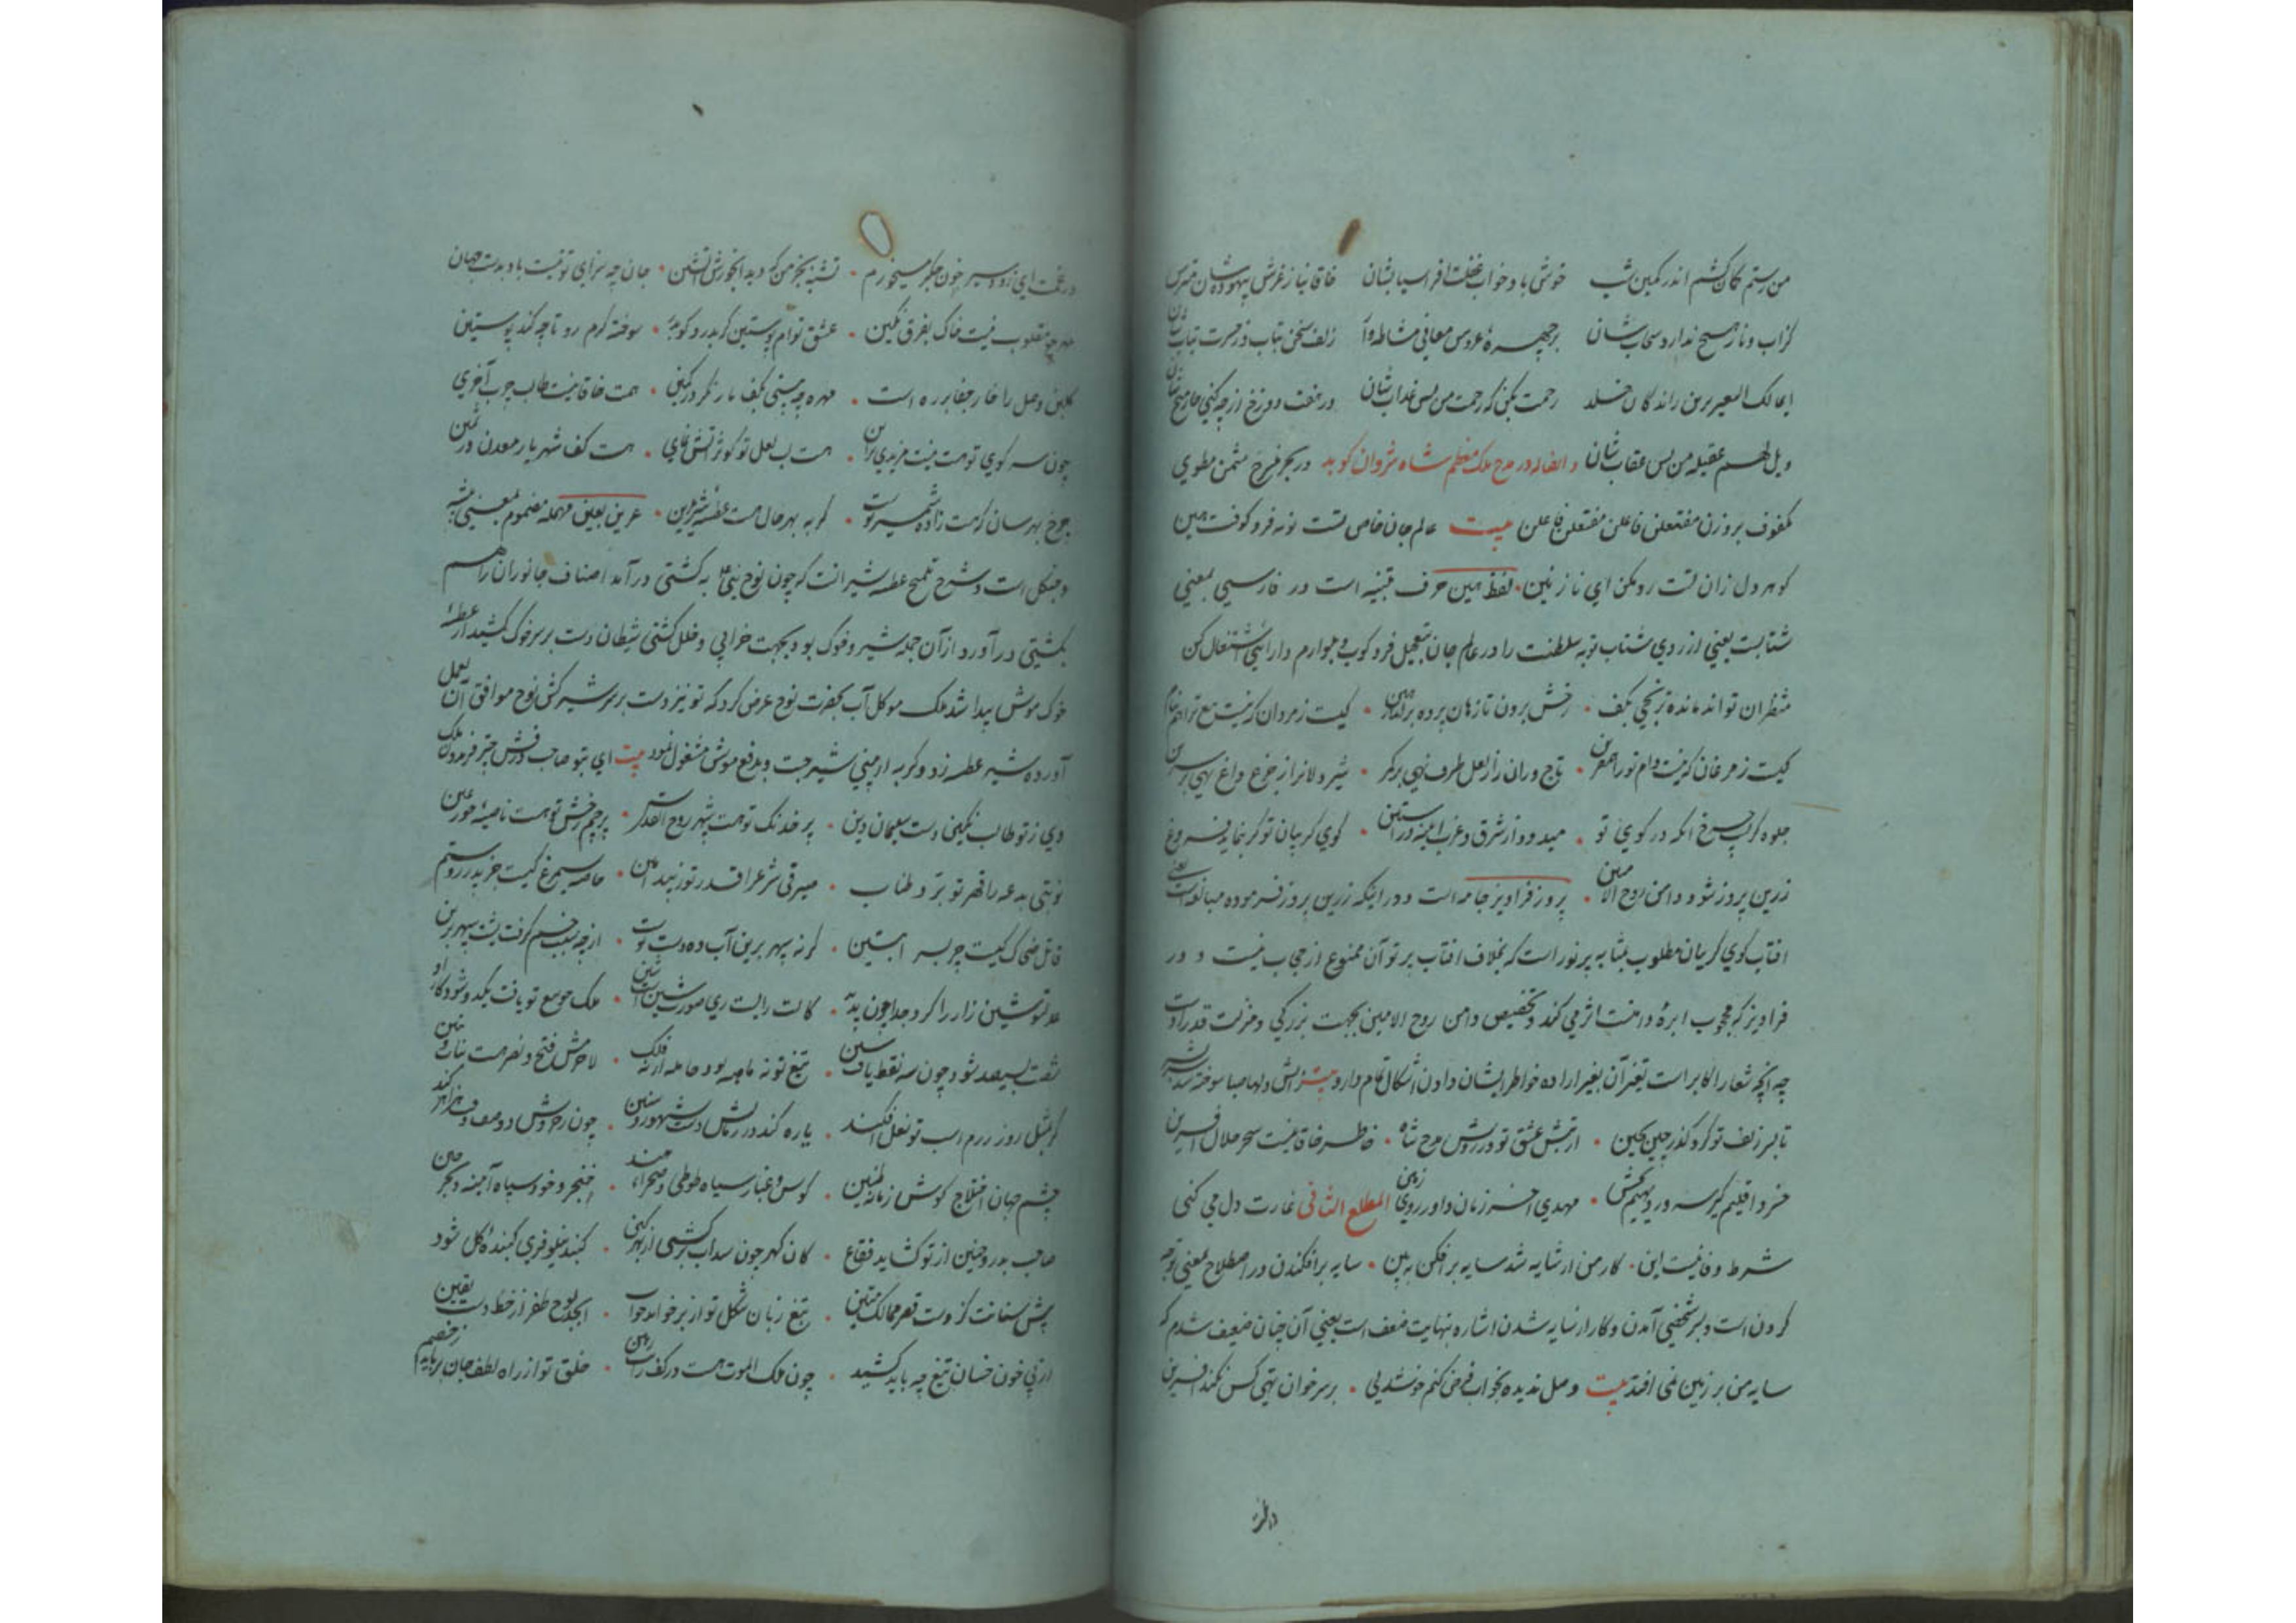 من رستم کمان کشم اندر کمین شب خوش باد خواب غفلت افراسیابشان خاقانیا ز غرش بیهوده شان مترس
کز آب و نار هیچ ندارد سحابشان بر چهره عروس معانی مشاطه وار زلف سخن بتاب و ز حسرت بتابشان
ای مالک السعیر برین راندگان خلد رحمت مکن که زحمت من بس عذابشان در هفت دوزخ از چه کنی چار میخشان
ویل لهم عقیله من بس عقابشان و ایضا له در مدح ملک معظم شاه شروان گوید در بحر منسرح مثمن مطوی
مکفوف بر وزن مفتعلن فاعلن مفتعلن فاعلن بیت عالم جان خاص تست نوبه فرو کوفت هین
گوهر دل زان تست رو مکن ای نازنین لفظ هین حرف تنبیه است در فارسی بمعنی
شتابست یعنی از روی شتاب نوبه سلطنت را در عالم جان بتعجیل فرو کوب و دارائی اشتغال کن
منتظران تو اند مانده ترنجی بکف رخش برون تاز هان پرده برانداز هین کیست ز مردان که نیست تیغ ترا هم نیام
کیست ز مرغان که نیست دام تو را همقرین تاج وران را ز لعل طرف نهی بر کمر شیر دلانرا ز جزع داغ نهی بر سرین
جلوه گر چرخ آنکه در کوی تو میدود از شرق و غرب آینه در آستین گوی گریبان تو گر بنماید فروغ
زرین پروز شود دامن روح الامین پروز فراویز جامه است و در اینکه زرین پروز فرموده مبالغه است یعنی
آفتاب گوی گریان مطلوب بمثابه پر نور است که بخلاف آفتاب پرتو آن ممنوع از حجاب نیست و در
فراویز که محجوب ابره و است اثر می کند و تخصیص دامن روح الامین بجهت بزرگی و منزلت قدر اوست
چه آنچه شعار اکابر است تغیر آن بغیر اراده خواطر ایشان دادن اشکال تمام دارد بیت ز آتش دلها صبا سوخته شد
تا بسر زلف تو کرد گذر چین بچین از تپش عشق تو در روش مدح شاه خاطر خاقانیست سحر حلال آفرین
خسرو اقلیم گیر سرور دیهیم بخش مهدی آخر زمان داور روی زمین المطلع الثانی غارت دل می کنی
شرط وفا نیست این کار من از سایه شد سایه برافکن ببین سایه برافکندن در اصطلاح بمعنی توجه
کردن است و بسر شخصی آمدن و کار از سایه شدن اشاره بنهایت ضعف است یعنی آن چنان ضعیف شدم که
سایه من بر زمین نمی افتد بیت وصل ندیده بخواب فرض کنم خوشدلی بر سر خوان تهی کس نکند آفرین
در غمت ای زود سیر خون جگر میخورم تشنه بجز من که دید آبخورش آتشین جان چه سزای تو نیست باد بدست جهان
مقلوب نیست خاک بفرق نگین عشق توام پوستین گر بدرد گو بدر سوخته گرم رو تا چه کند پوستین
گلبن وصل را خار جفا بر ره است مهره چه بینی بکف مار نگر در کمین همت خاقانیست طالب چرب آخری
چون سر کوی تو هست نیست مزیدی بر این هست لب لعل تو کوثر آتش نمای هست کف شهریار معدن در ثمین
چرخ بهرسان که هست زاده شمشیر اوست گربه بهر حال هست عطسه شیر عرین عرین بعین مهمله مضموم بمعنی بیشه
و جنگل است و شرح تلمیح عطسه شیر آنست که چون نوح نبی به کشتی در آمد اصناف جانوران را هم
بکشتی در آورد از آن جمله شیر و خوک بود بجهت خرابی و خلل کشتی شیطان دست بر سر خوک کشید از عطسه
خوک موش پیدا شد ملک موکل آب بحضرت نوح عرض کرد که تو نیز دست بر سر شیر کش نوح موافق آن بعمل
آورده شیر عطسه زد و گربه از بینی شیر جست و بدفع موش مشغول نمود بیت ای بتو صاحب درفش چتر فریدون ملک
وی ز تو طالب نگین دست سلیمان دین پر خدنگ تو هست شهپر روح القدس پرچم رخش تو هست ناصیه حور عین
نوبتی بدعه را قهر تو برد طناب صیرفی شرع را قدر تو زیبد امین حاصد سیمرغ کیست جز پدر روستم
قاتل ضحاک کیست جز پسر آبتین گرنه سپهر برین آب ده دست توست از چه سبب خم گرفت پشت سپهر برین
عدل تو شین ز ار را کرد جدا چون بدید کآلت رای است ری صورت شین است شین ملک چو سع تو یافت یکدوشود کار او
شصت بسیصد شود چون سه نقط یافت سین تیغ تو نه ماهه بود حامله از نه فلک لاجرمش فتح و نصر هست بنات و بنین
گر بمثل روز رزم اسب تو نعل افکند یاره کند در زمانش دست شهور و سنین چون رحم در دو صف وهزاهز کند
چشم جهان اختلاج گوش زمانه طنین کوس و غبار سپاه طوطی و صحرای هند خنجر و خود سیاه آینه و بحر چین
صاحب بدر و حنین از تو گشاید فقاع کان گهر چون سداب برکشی از بهر کین گنبد نیلوفری گنبده گل شود
پیش سنانت کزوست قصر ممالک متین تیغ زبان شکل تو از بر خواند چو آب ابجد لوح ظفر از خط دست یقین
از پی خون خسان تیغ چه باید کشید چون ملک الموت هست در کف رایت رهین خلق تو از راه لطف جان برباید ز خصم